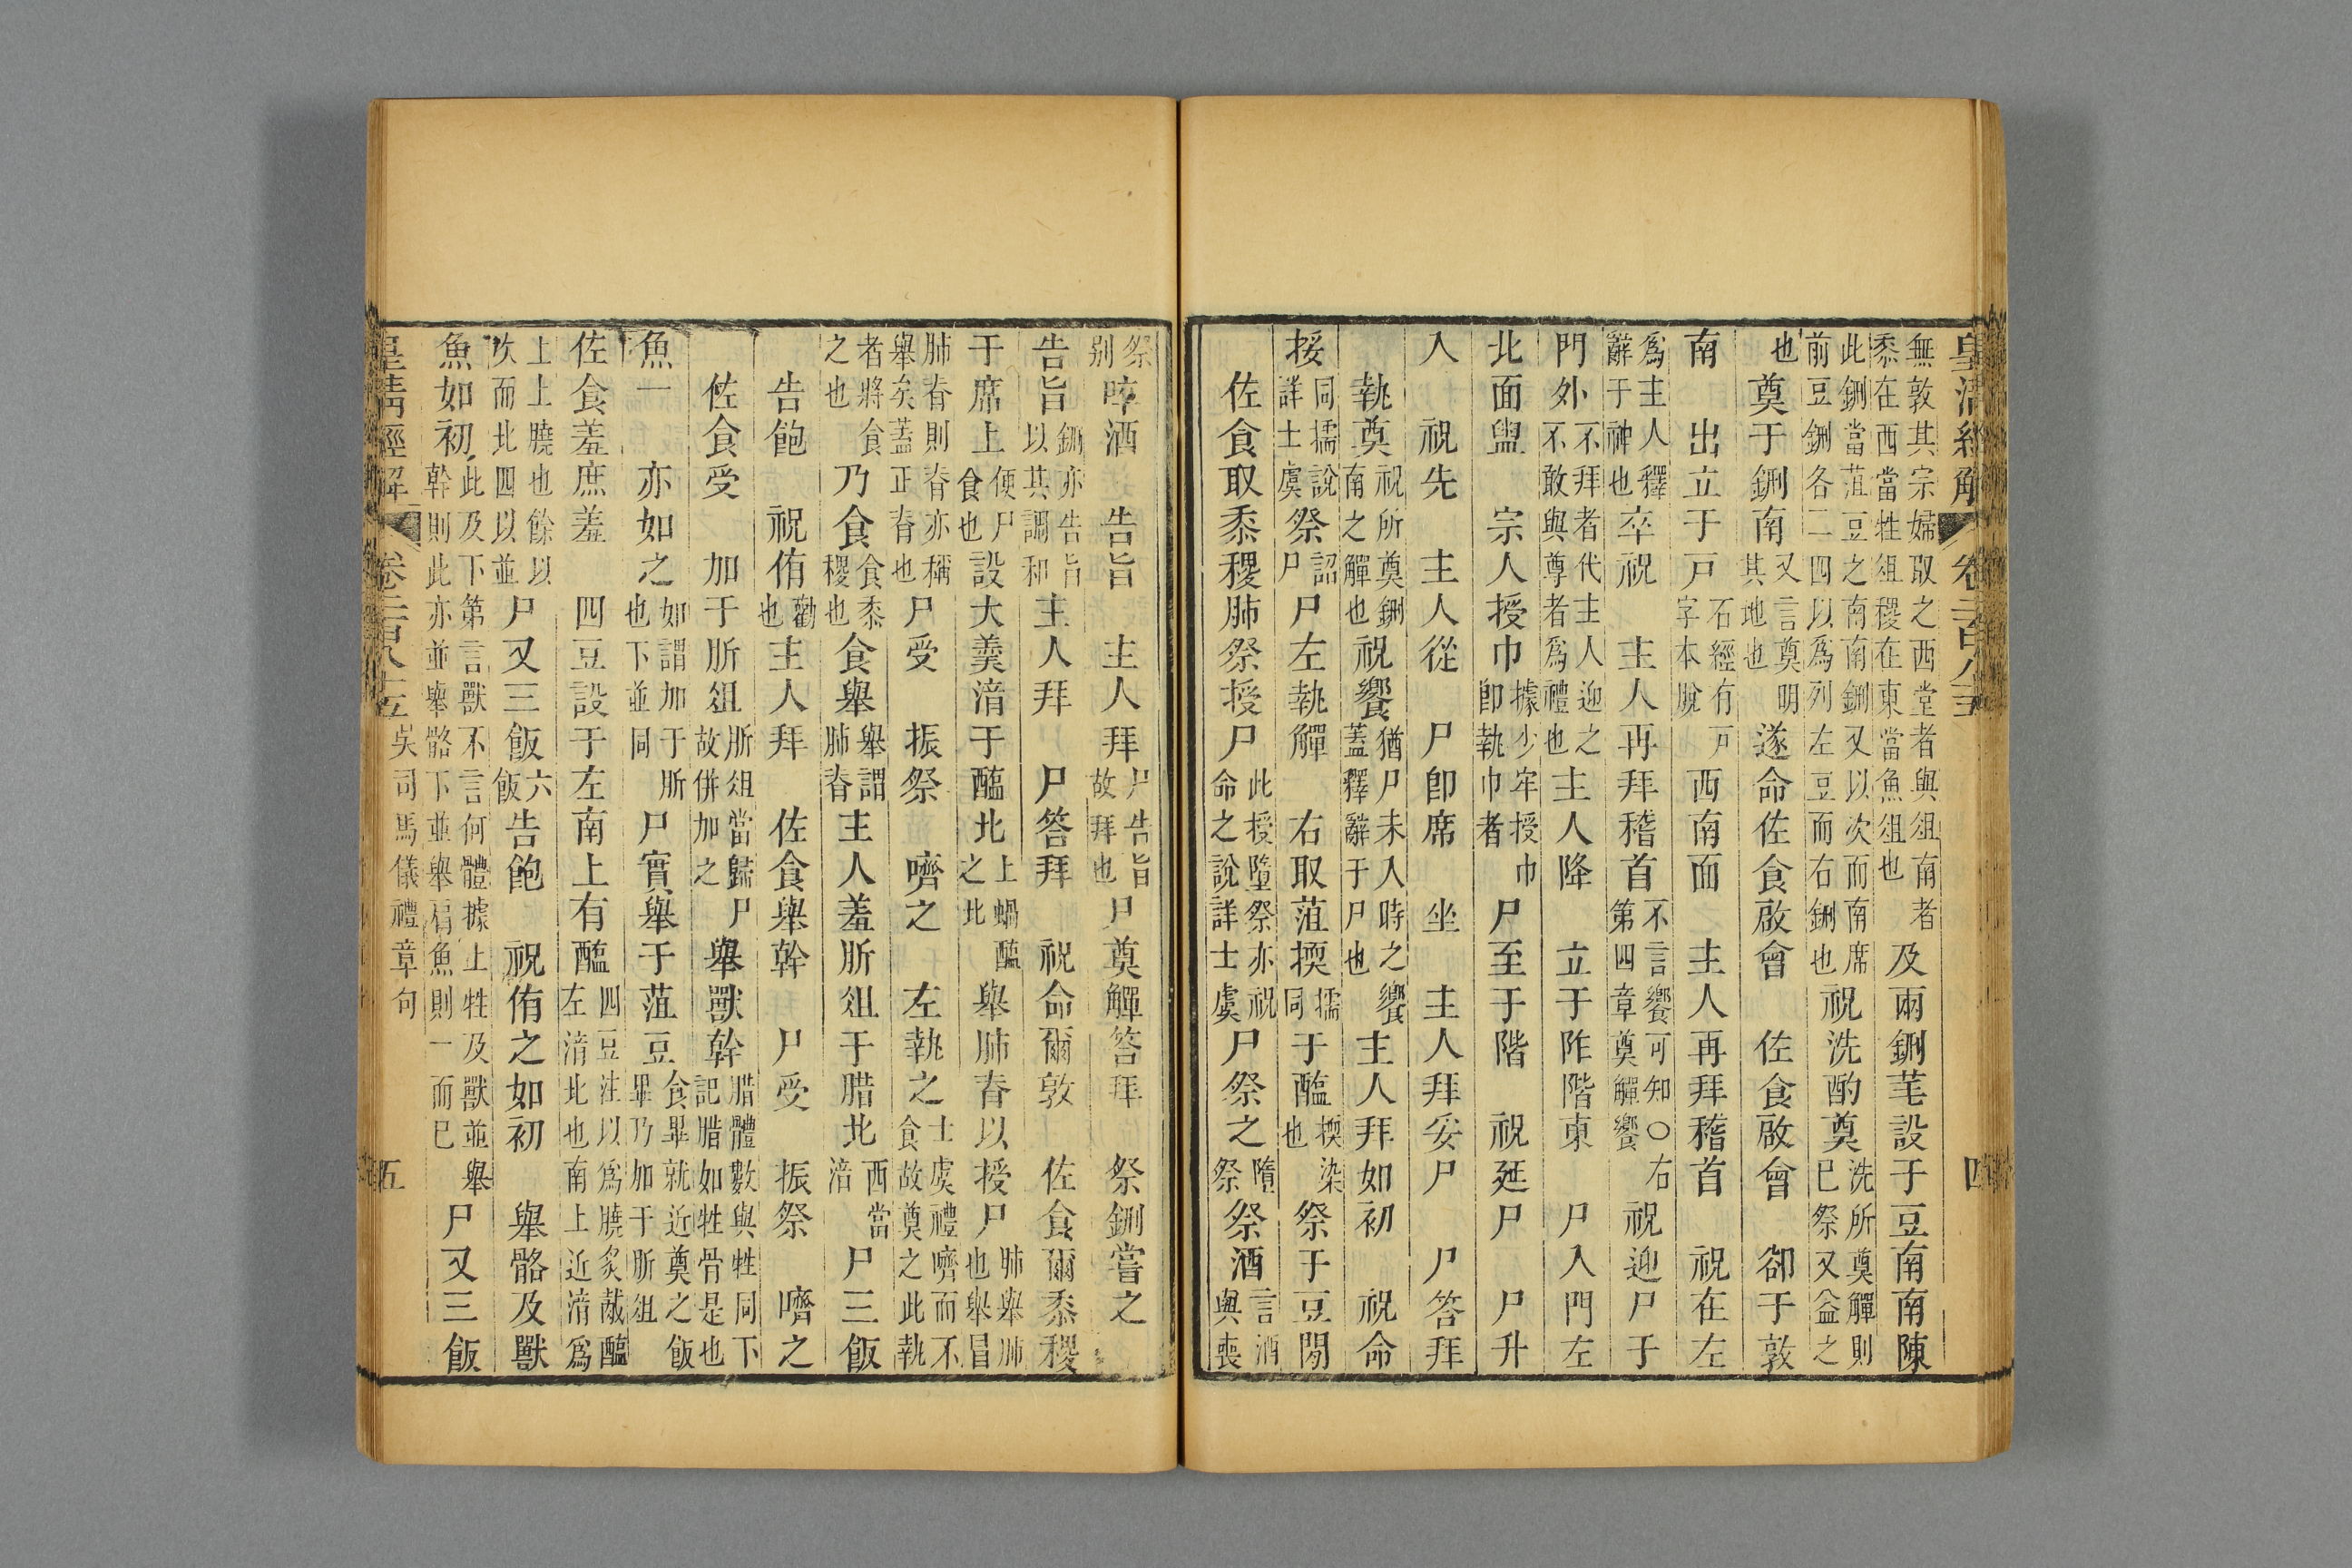 皇清經解 卷二百八十五 四
無敦其宗婦取之西堂者與俎南者
黍在西當牲俎稷在東當魚俎也
及兩鉶芼設于豆南南陳
此鉶當菹豆之南南鉶又以次而南席
前豆鉶各二四以爲列左豆而右鉶也
祝洗酌奠
洗所奠觶則
巳祭又益之
也
奠于鉶南
又言奠明
其地也
遂命佐食啟會 佐食啟會 卻于敦
南 出立于戸
石經有戸
字本脫
西南面 主人再拜稽首 祝在左
爲主人釋
辭于神也
卒祝 主人再拜稽首
不言饗可知○右
第四章奠觶饗
祝迎尸于
門外
不拜者代主人迎之
不敢與尊者爲禮也
主人降 立于阼階東 尸入門左
北面盥 宗人授巾
據少牢授巾
卽執巾者
尸至于階 祝延尸 尸升
入 祝先 主人從 尸卽席坐 主人拜妥尸 尸答拜
執奠
祝所奠鉶
南之觶也
祝饗
猶尸未入時之饗
蓋釋辭于尸也
主人拜如初 祝命
挼
同擩說
詳士虞
祭
詔
尸
尸左執觶 右取菹㨎
擩
同
于醢
㨎染
也
祭于豆閒
佐食取黍稷肺祭授尸
此授墮祭亦祝
命之說詳士虞
尸祭之
隋
祭
祭酒
言酒
與喪
祭
别
啐酒 告旨 主人拜
尸告旨
故拜也
尸奠觶答拜 祭鉶嘗之
告旨
鉶亦告旨
以其調和
主人拜 尸答拜 祝命爾敦 佐食爾黍稷
于席上
便尸
食也
設大羹湆于醢北
上蝸醢
之北
舉肺脊以授尸
肺舉肺
也舉冒
肺脊則脊亦稱
舉矣蓋正脊也
尸受 振祭 嚌之 左執之
士虞禮嚌而不
食故奠之此執
者將食
之也
乃食
食黍
稷也
食舉
舉謂
肺脊
主人羞肵俎于腊北
西當
湆
尸三飯
告飽 祝侑
勸
也
主人拜 佐食舉幹 尸受 振祭 嚌之
佐食受 加于肵俎
肵俎當歸尸
故併加之
舉獸幹
腊體數與牲同下
記腊如牲骨是也
魚一 亦如之
如謂加于肵
也下並同
尸實舉于菹豆
食畢就近奠之飯
畢乃加于肵俎
佐食羞庶羞 四豆設于左南上有醢
四豆注以爲膮炙胾醢
左湆北也南上近湆爲
上上膮也餘以
次而北四以並
尸又三飯
六
飯
告飽 祝侑之如初 舉骼及獸
魚如初
此及下第言獸不言何體據上牲及獸並舉
幹則此亦並舉骼下並舉肩魚則一而巳
尸又三飯
皇清經解 卷二百八十五 吳司馬儀禮章句 五